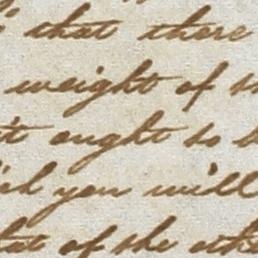 that there
weight of
ought so
you will
of the othe